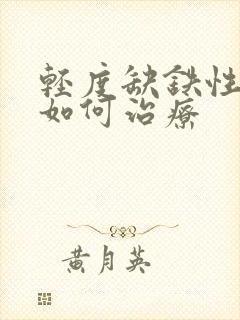 輕度缺鉄性
如何治療
黃月英